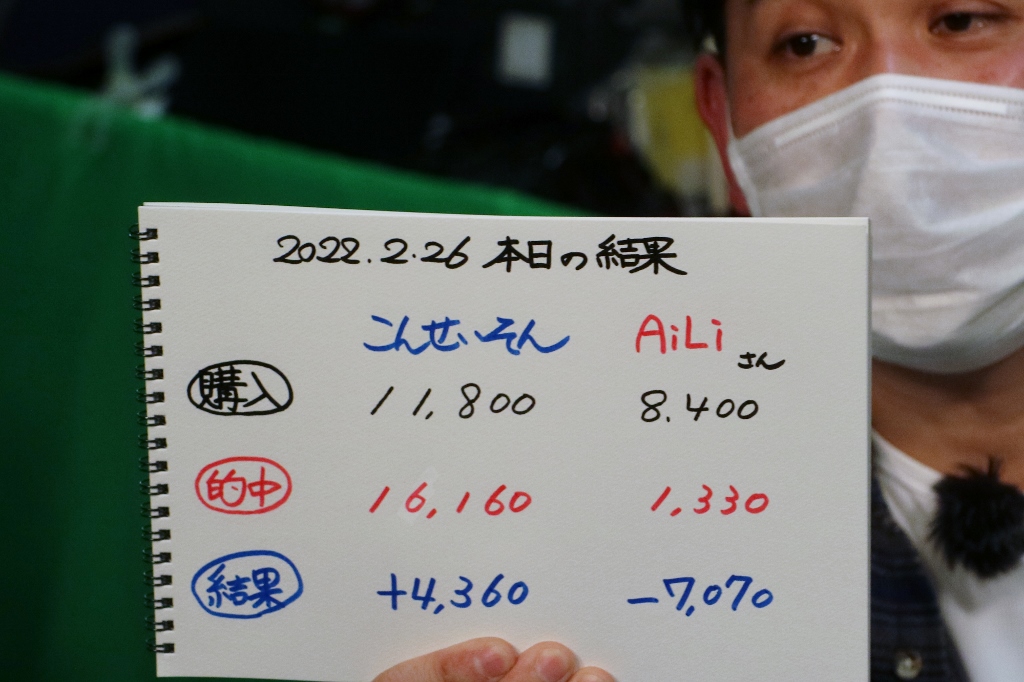 2022.2.26 本日の結果
こんせいそん AiLi さん
購入 11,800 8.400
的中 16,160 1,330
結果 +4,360 -7,070